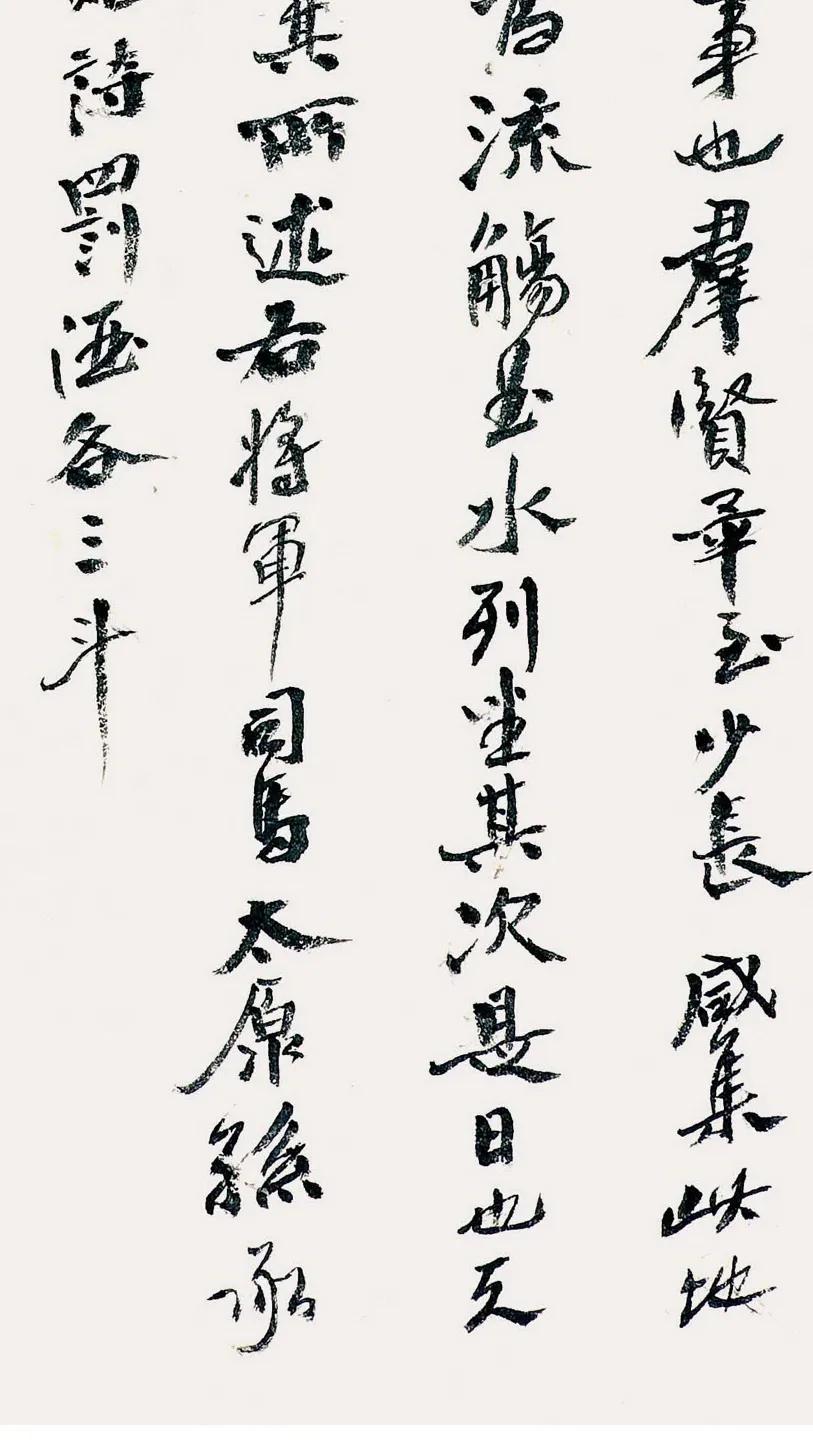 事也羣賢畢至少長咸集此地
為流觴曲水列坐其次是日也天
其所述右將軍司馬太原孫承
詩罰酒各三斗